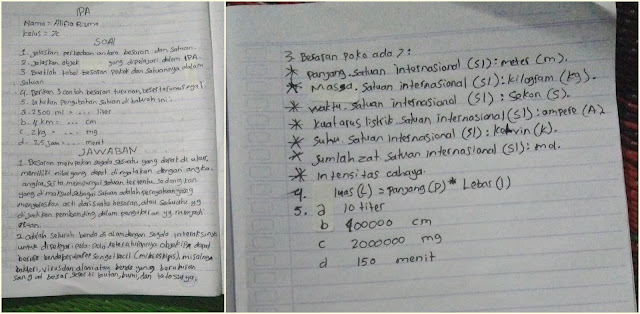 IPA
Nama = Alifia Rizma
kelas =
SOAL
1. Jelaskan perbedaan antara besaran dan satuan.
2. Jelaskan objek yang dipelajari dalam IPA.
3. Buatlah tabel besaran pokok dan satuannya dalam
satuan
4. Berikan 3 contoh besaran turunan, beserta rumusnya!
5. Lakukan pengubahan satuan di bawah ini:
a. 2500 ml = ... liter
b. 4 km = ... cm
c. 2 kg = ... mg
d. 2,5 jam = ... menit
JAWABAN
1. Besaran merupakan segala sesuatu yang dapat di ukur,
memiliki nilai yang dapat dinyatakan dengan angka.
angka, serta mempunyai satuan tertentu. Sedangkan
yang di maksud sebagai satuan adalah pernyataan yang
menjelaskan arti dari suatu besaran, atau sesuatu yg
di jadikan pembanding dalam pengukuran yg menjadi
2. adalah seluruh benda di alam dengan segala interaksinya
untuk di pelajari pola-pola keteraturannya objek IPA dapat
berupa benda sangat kecil (mikroskopis), misalnya
bakteri, virus dan benda yang berukuran
sangat besar seperti lautan, bumi, dan tata surya.
3. Besaran poko ada 7:
* panjang. satuan internasional (SI): meter (m).
* Massa. satuan internasional (SI): kilogram (kg).
* waktu. satuan internasional (SI): sekon (s).
* kuat arus listrik. satuan internasional (SI): ampere (A)
* suhu satuan internasional (SI): kelvin (k).
* Jumlah zat. satuan internasional (SI): mol.
* intensitas cahaya.
4. luas (L) = panjang (p) * Lebar (l)
5. a 10 liter
b 400000 cm
c 2000000 mg
d 150 menit